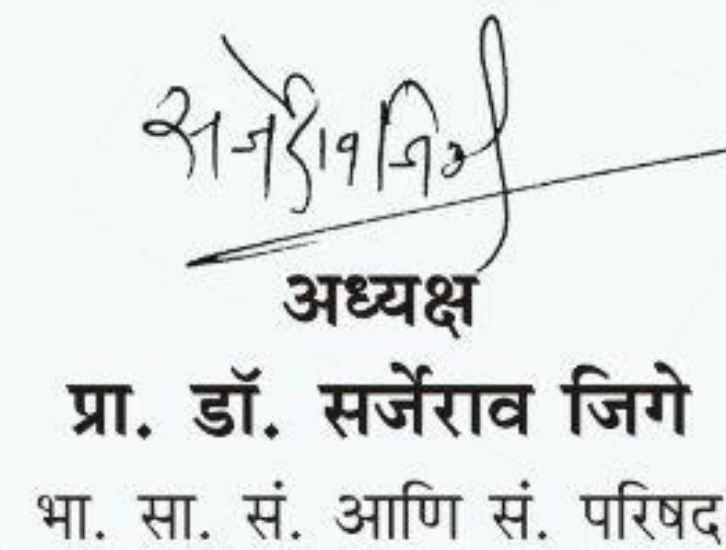 सर्जेराव जिगे
अध्यक्ष
प्रा. डॉ. सर्जेराव जिगे
भा. सा. सं. आणि सं. परिषद